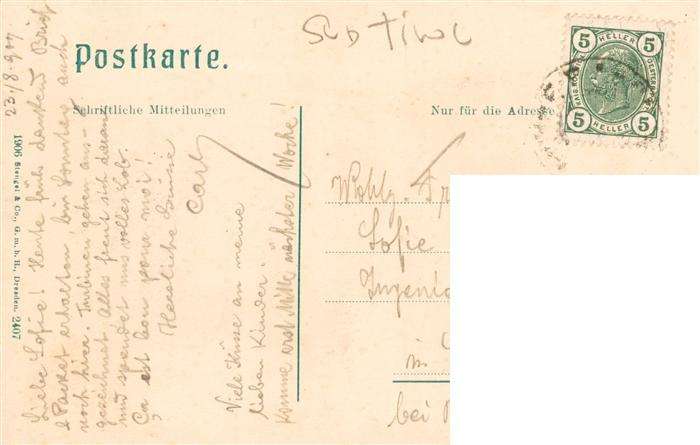 Südtirol
Postkarte.
Schriftliche Mitteilungen
Nur für die Adresse
5 HELLER 5
5 HELLER 5
1906 Stengel & Co., G. m. b. H., Dresden. 2407
23/8. 907
Liebe Sofie! Heute früh danken Brief
& Packet erhalten bin Sonntag auch
noch hier. Turbinen gehen aus-
gezeichnet. Alles freut sich daran
und spendet uns volles Lob.
Ça est bon pour moi!
Herzliche Küsse
Carl
Viele Küsse an meine
lieben Kinder.
Komme erst Mitte nächster Woche!
Wohlg.
Sofie
Ingeni
in
bei